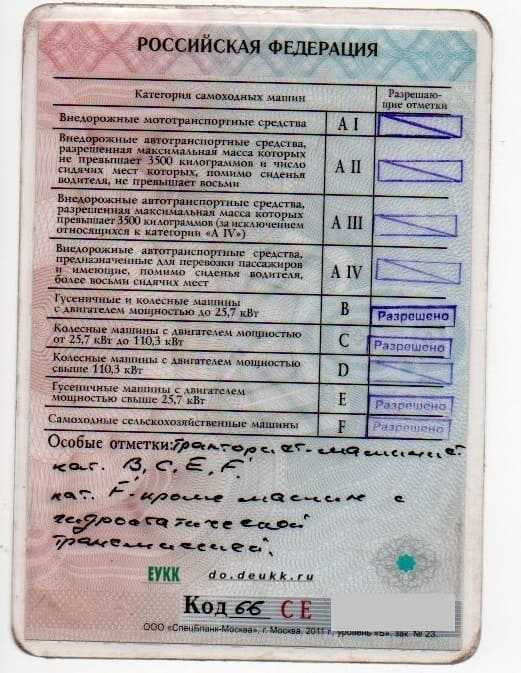 РОССИЙСКАЯ ФЕДЕРАЦИЯ
Категория самоходных машин
Разрешаю-
щие отметки
Внедорожные мототранспортные средства
А I
Внедорожные автотранспортные средства,
разрешенная максимальная масса которых
не превышает 3500 килограммов и число
сидячих мест которых, помимо сиденья
водителя, не превышает восьми
А II
Внедорожные автотранспортные средства,
разрешенная максимальная масса которых
превышает 3500 килограммов (за исключением
относящихся к категории «А IV»)
А III
Внедорожные автотранспортные средства,
предназначенные для перевозки пассажиров
и имеющие, помимо сиденья водителя,
более восьми сидячих мест
А IV
Гусеничные и колесные машины
с двигателем мощностью до 25,7 кВт
B
Разрешено
Колесные машины с двигателем мощностью
от 25,7 кВт до 110,3 кВт
C
Разрешено
Колесные машины с двигателем мощностью
свыше 110,3 кВт
D
Гусеничные машины с двигателем
мощностью свыше 25,7 кВт
E
Разрешено
Самоходные сельскохозяйственные машины
F
Разрешено
Особые отметки: Тракторист-машинист
кат. B, C, E, F.
кат. F - кроме машин с
гидростатической
трансмиссией.
ЕУКК do.deukk.ru
Код 66 СЕ
ООО «СпецБланк-Москва», г. Москва, 2011 г., уровень «Б», зак. № 23.